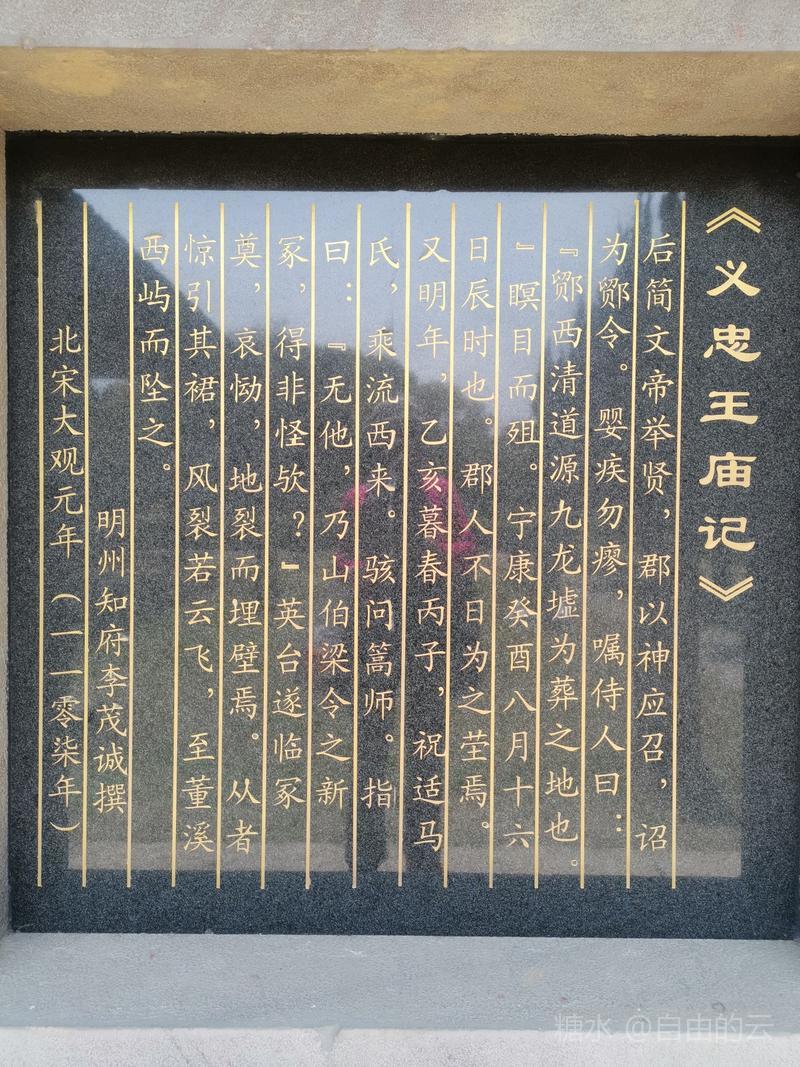 《义忠王庙记》
后简文帝举贤，郡以神应召，诏
为鄮令。婴疾勿瘳，嘱侍人曰：
『鄮西清道源九龙墟为葬之地也。
』瞑目而殂。宁康癸酉八月十六
日辰时也。郡人不日为之茔焉。
又明年，乙亥暮春丙子，祝适马
氏，乘流西来。骇问篙师。指
曰：『无他，乃山伯梁令之新
冢，得非怪欤？』英台遂临冢
奠，哀恸，地裂而埋壁焉。从者
惊引其裙，风裂若云飞，至董溪
西屿而坠之。
明州知府李茂诚撰
北宋大观元年（一一零柒年）
糖水 @自由的云